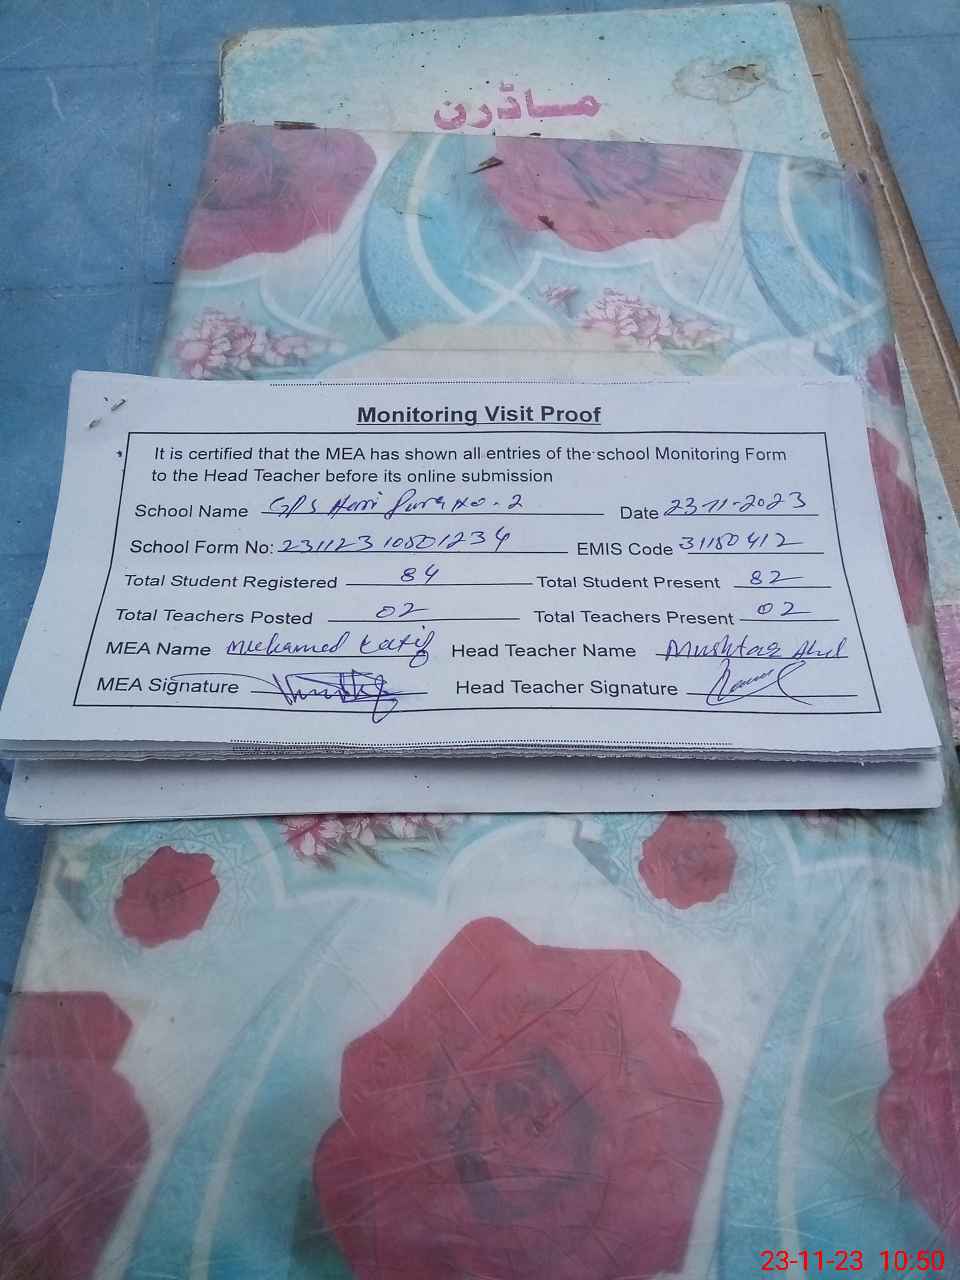 ماڈرن
Monitoring Visit Proof
It is certified that the MEA has shown all entries of the school Monitoring Form
to the Head Teacher before its online submission
School Name GPS No-2 Date 23-11-2023
School Form No: 23112310501234 EMIS Code 31150412
Total Student Registered 84 Total Student Present 82
Total Teachers Posted 02 Total Teachers Present 02
MEA Name Muhamed Latif Head Teacher Name Mushtaq
MEA Signature Head Teacher Signature
23-11-23 10:50